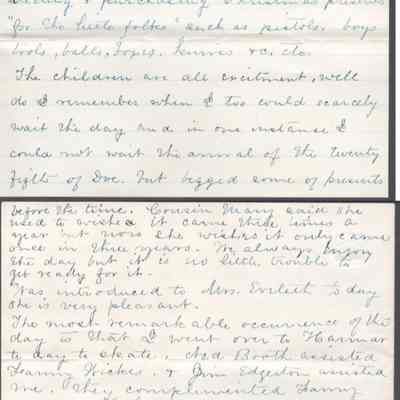 purchasing Christmas presents
"for the little folks" such as pistols, boys
tools, balls, tops, knives &c. etc.
The children are all excitment, well
do I remember when I too could scarcely
wait the day and in one instance I
could not wait the arrival of the twenty
fifth of Dec. but begged some of presents
before the time. Cousin Mary said she
used to wish it came three times a
year but now she wishes it only came
once in three years. We always enjoy
the day but it is no little trouble to
get ready for it.
Was introduced to Mrs. to day
she is very pleasant.
The most remarkable occurrence of the
day is that I went over to Harmar
to day to skate. Ned Booth assisted
Fanny Wickes, & Jim Edgerton assisted
me. They complimented Fanny